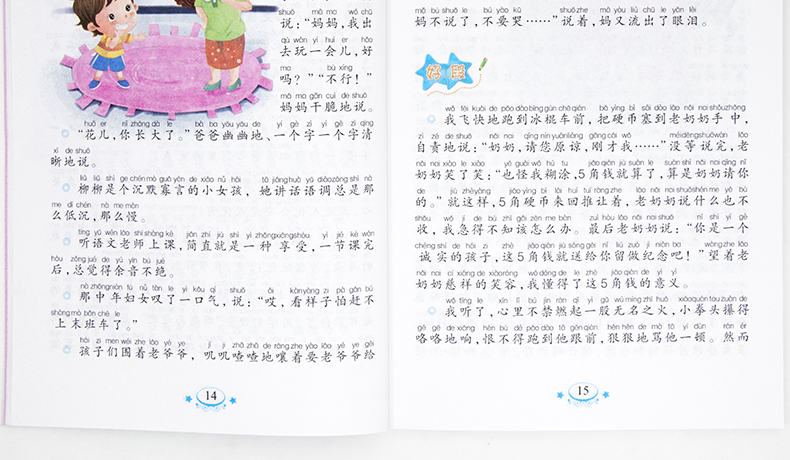 说：“妈妈，我出
去玩一会儿，好
吗？”“不行！”
妈妈干脆地说。
“花儿，你长大了。”爸爸幽幽地、一个字一个字清
晰地说。
柳柳是个沉默寡言的小女孩，她讲话语调总是那
么低沉，那么慢。
听语文老师上课，简直就是一种享受，一节课完
后，总觉得余音不绝。
那中年妇女叹了一口气，说：“哎，看样子怕赶不
上末班车了。”
孩子们围着老爷爷，叽叽喳喳地嚷着要老爷爷给
14
妈不说了，不要哭……”说着，妈又流出了眼泪。
好段
我飞快地跑到冰棍车前，把硬币塞到老奶奶手中，
自责地说：“奶奶，请您原谅，刚才我……”没等说完，老
奶奶笑了笑：“也怪我糊涂，5角钱就算了，算是奶奶请你
的。”就这样，5角硬币来回推让着，老奶奶说什么也不
收，我急得不知该怎么办。最后老奶奶说：“你是一个
诚实的孩子，这5角钱就送给你留做纪念吧！”望着老
奶奶慈祥的笑容，我懂得了这5角钱的意义。
我听了，心里不禁燃起一股无名之火，小拳头攥得
咯咯地响，恨不得跑到他跟前，狠狠地骂他一顿。然而
15